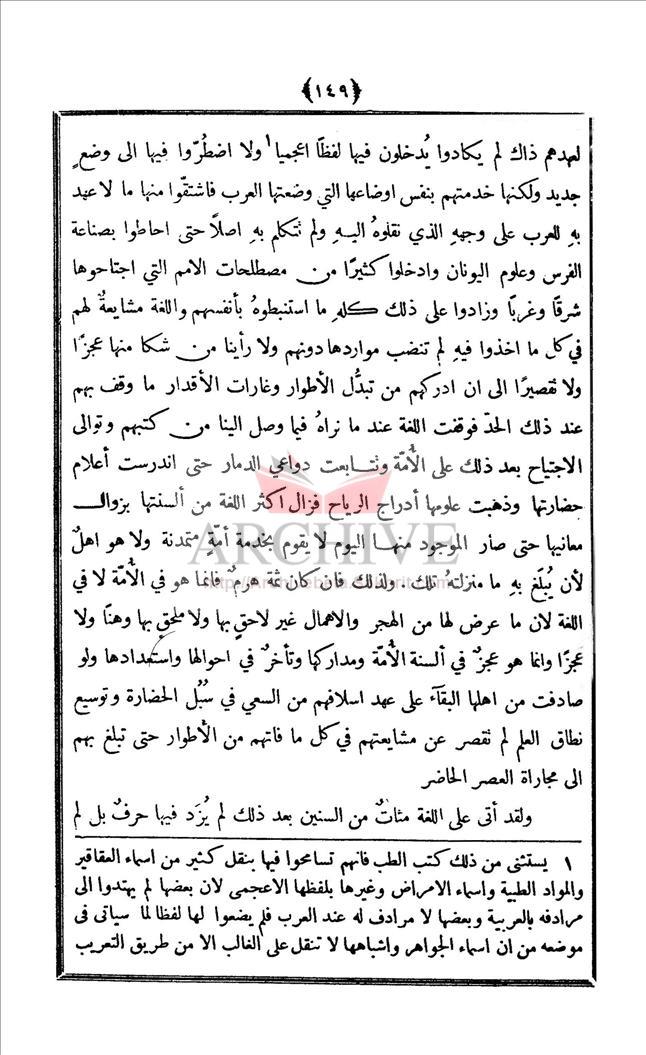 ﴿١٤٩﴾
لعهدهم ذاك لم يكادوا يُدخلون فيها لفظًا اعجميا ١ ولا اضطُرّوا فيها الى وضعٍ
جديد ولكنها خدمتهم بنفس اوضاعها التي وضعتها العرب فاشتقّوا منها ما لا عهد
بهِ للعرب على وجههِ الذي نقلوهُ اليهِ ولم نتكلم بهِ اصلًا حتى احاطوا بصناعة
الفرس وعلوم اليونان وادخلوا كثيرًا من مصطلحات الامم التي اجتاحوها
شرقًا وغربًا وزادوا على ذلك كلهِ ما استنبطوهُ بأنفسهم واللغة مشايعةٌ لهم
في كل ما اخذوا فيهِ لم تنضب مواردها دونهم ولا رأينا من شكا منها عجزًا
ولا نقصيرًا الى ان ادركهم من تبدُّل الأطوار وغارات الأقدار ما وقف بهم
عند ذلك الحدّ فوقفت اللغة عند ما نراهُ فيما وصل الينا من كتبهم وتوالى
الاجتياح بعد ذلك على الأُمّة ونتابعت دواعي الدمار حتى اندرست أعلام
حضارتها وذهبت علومها أدراج الرياح فزال اكثر اللغة من ألسنتها بزوال
معانيها حتى صار الموجود منها اليوم لا يقوم بخدمة أمّةٍ متمدنة ولا هو اهلٌ
لأن يُبلَغ بهِ ما منزلته تلك . ولذلك فان كان ثمة هرمٌ فانما هو في الأُمّة لا في
اللغة لان ما عرض لها من الهجر والاهمال غير لاحقٍ بها ولا ملحقٍ بها وهنًا ولا
عجزًا وانما هو عجزٌ في ألسنة الأُمّة ومداركها وتأخرٌ في احوالها واستعدادها ولو
صادفت من اهلها البقآء على عهد اسلافهم من السعي في سُبُل الحضارة وتوسيع
نطاق العلم لم نقصر عن مشايعتهم في كل ما فاتهم من الأطوار حتى تبلغ بهم
الى مجاراة العصر الحاضر
ولقد أتى على اللغة مئاتٌ من السنين بعد ذلك لم يُزَد فيها حرفٌ بل لم
١ يستثنى من ذلك كتب الطب فانهم تسامحوا فيها بنقل كثير من اسماء العقاقير
والمواد الطبية واسماء الامراض وغيرها بلفظها الاعجمى لان بعضها لم يهتدوا الى
مرادفه بالعربية وبعضها لا مرادف له عند العرب فلم يضعوا لها لفظا لما سياتى فى
موضعه من ان اسماء الجواهر واشباهها لا تنقل على الغالب الا من طريق التعريب
ARCHIVE